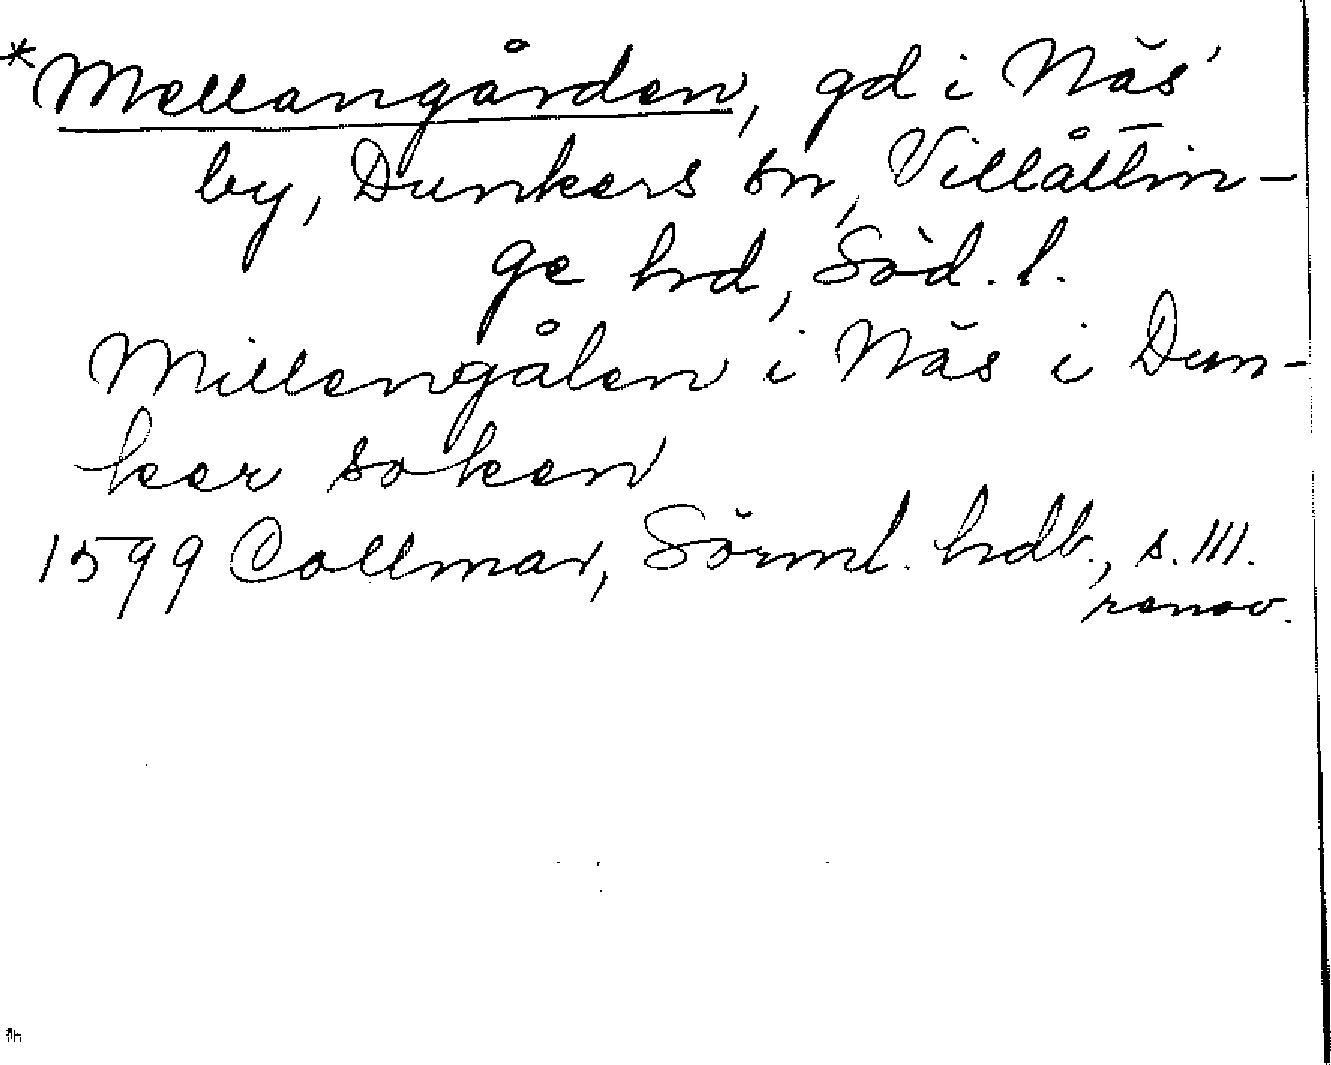 *Mellangården, gd i Näs'
by, Dunkers sn, Villåttin-
ge hrd, Söd. l.
Millengålen i Näs i Dun-
ker soken
1599 Collmar, Sörml. hdb., s. 111.
renov.